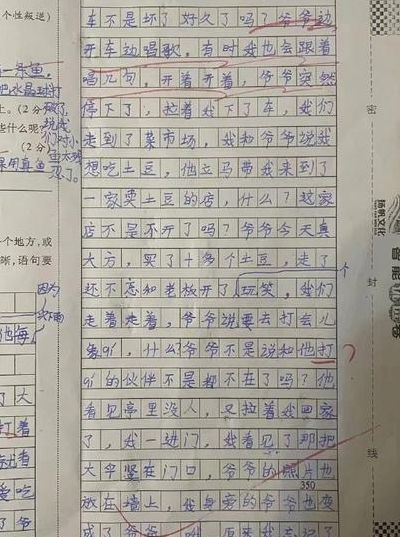 个性叛逆)
一条鱼,
把水晶球打
破了,
土。(2分
说我
些什么呢?
们对小
(2分
鱼太残
采用真鱼
忍了。
个地方,或
晰,语句要
因为
他每
了大
打着
就看
爱吃
了爷
车不是坏了好久了吗?爷爷边
开车边唱歌。有时我也会跟着
唱几句,开着开着,爷爷突然
停下了,拉着我下了车,我们
走到了菜市场,我和爷爷说我
想吃土豆,他立马带我来到了
一家卖土豆的店,什么?这家
店不是不开了吗?爷爷今天真
大方,买了十多个土豆,走了
还不忘和老板开了个玩笑,我们
走着走着,爷爷说要去打会儿
象听,什么?爷爷不是说和他打
听的伙伴不是都不在了吗?他
看见亭里没人,又拉着我回家
了,我一进门,我看见了那把
大伞竖在门口,爷爷的照片也
350
放在墙上,我身旁的爷爷也变
成了爷爷 原来我忘记了
密
扬帆文化
封
线